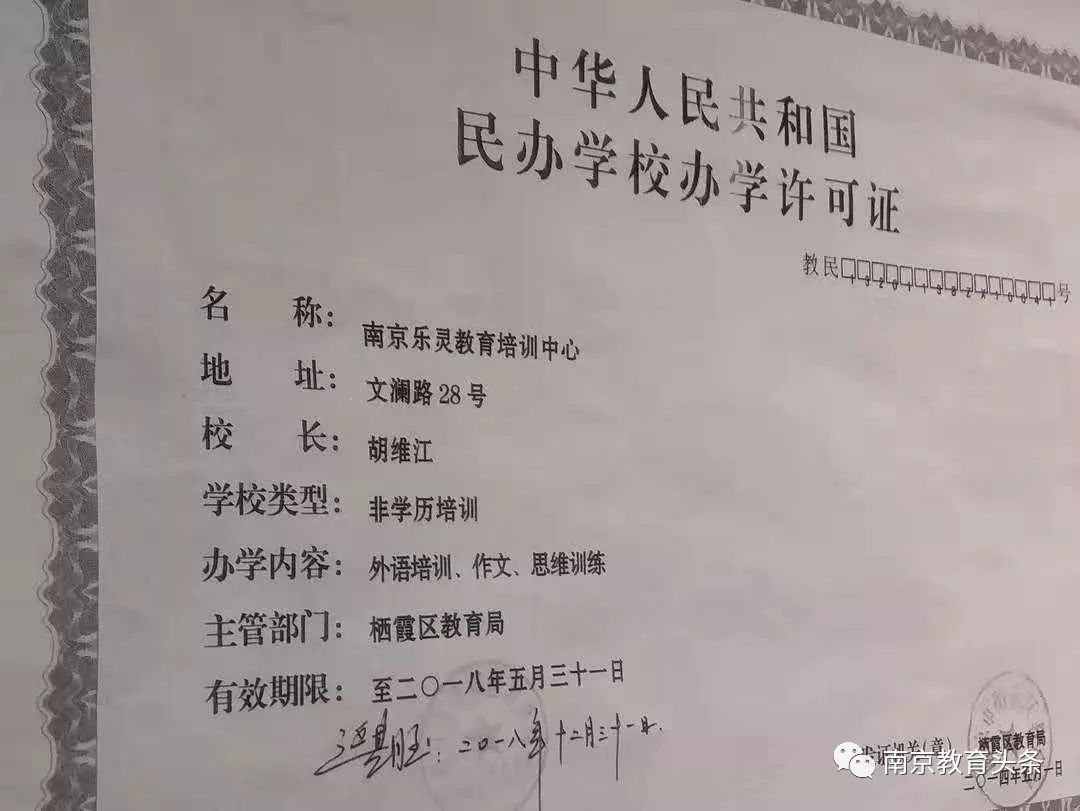 中华人民共和国
民办学校办学许可证
教民132011382110041号
名称：南京乐灵教育培训中心
地址：文澜路28号
校长：胡维江
学校类型：非学历培训
办学内容：外语培训、作文、思维训练
主管部门：栖霞区教育局
有效期限：至二〇一八年五月三十一日
二〇一八年十二月三十一日
发证机关（章）
栖霞区教育局
二〇一四年五月一日
南京教育头条